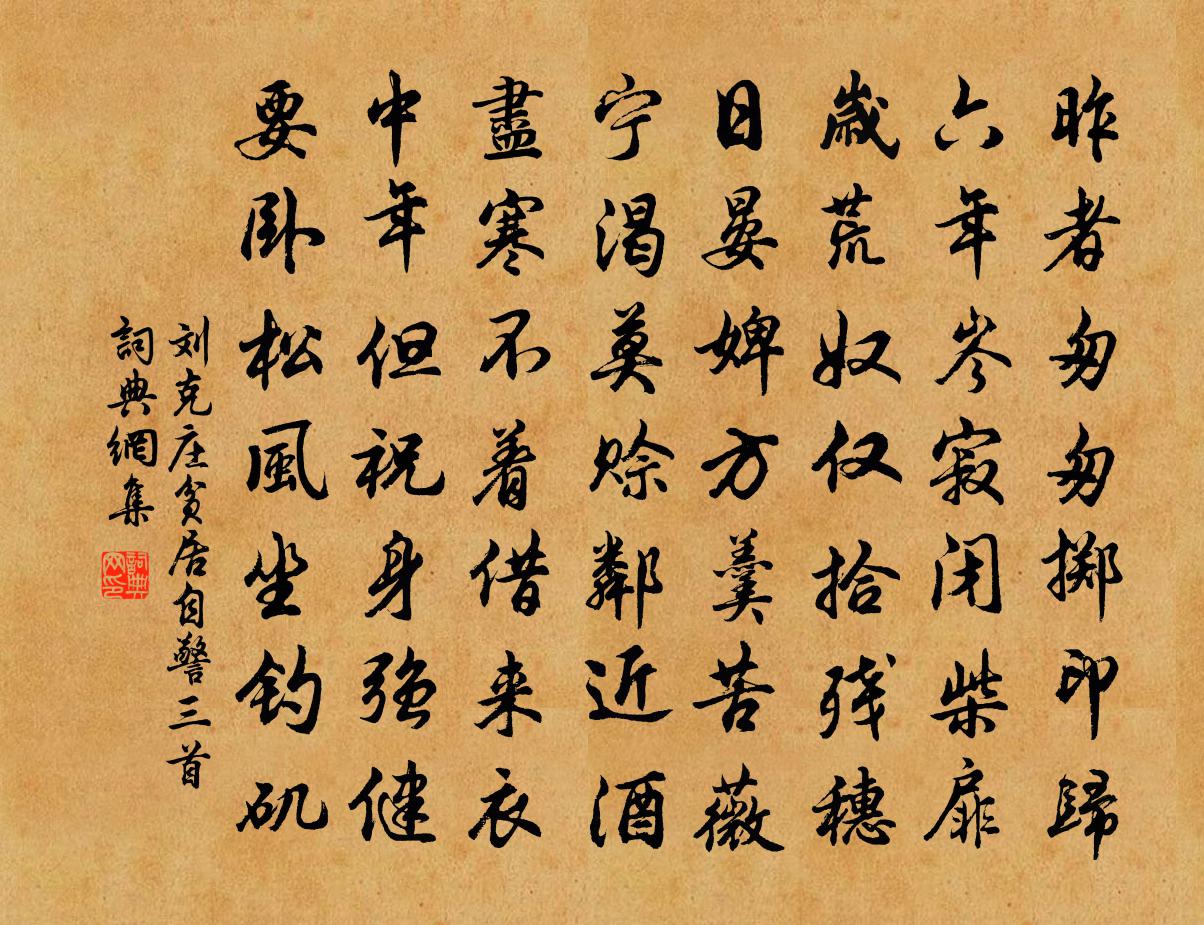 昨者匆匆掷印歸
六年岑寂闭柴扉
歲荒奴仅拾残穗
日晏婢方羹苦薇
宁渴莫赊鄰近酒
盡寒不着借来衣
中年但祝身强健
要卧松風坐钓矶
刘克庄贫居自警三首
詞典網集